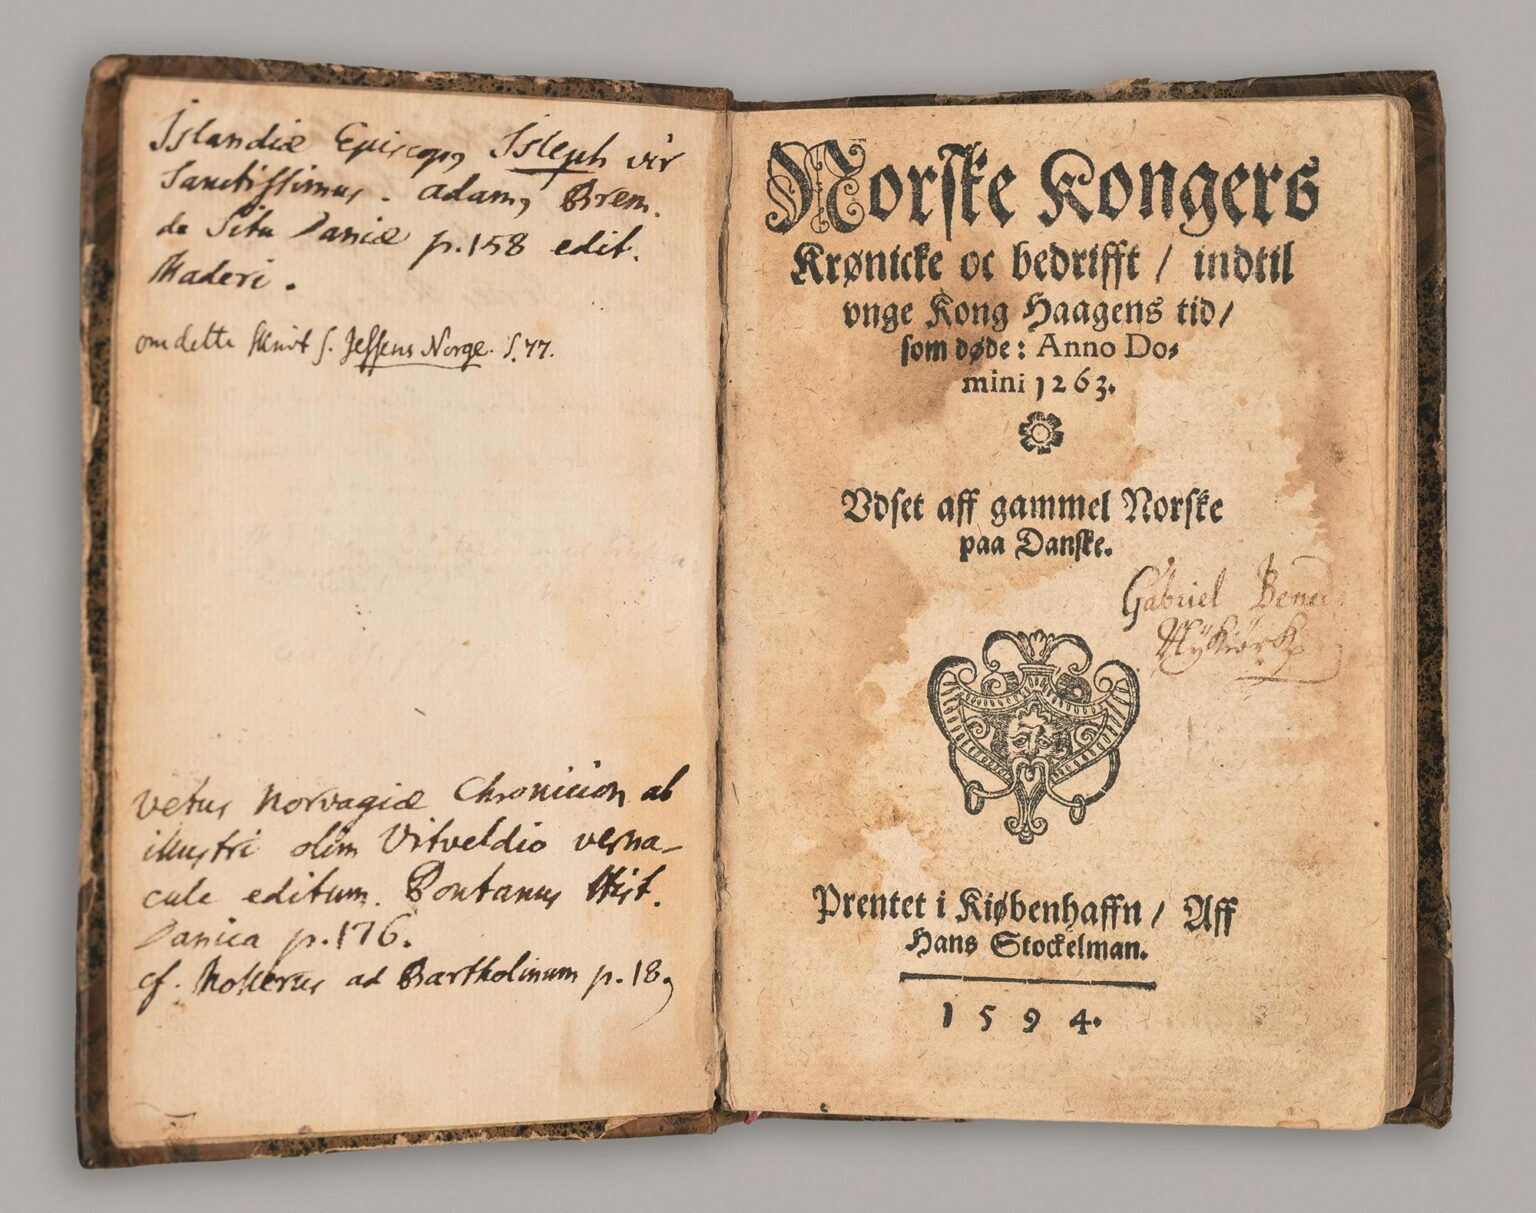 Islandiæ Episcopq Isleph vir
Sanctissimus. Adamq Brem.
de Situ Daniæ p.158 edit.
Maderi.
om dette skrivt s. Jessens Norge. S. 77.
vetus Norvagiæ Chronicion ab
illustri olim Vitveldio verna-
cule editum. Pontanus Hist.
Danica p.176.
cf. Mollerus ad Bartholinum p. 18
Norſke Kongers
Krønicke oc bedrifft / indtil
vnge Kong Haagens tid /
ſom døde : Anno Do⸗
mini 1263.
Vdſet aff gammel Norſke
paa Danſke.
Gabriel
Prentet i Kiøbenhaffn / Aff
Hans Stockelman.
1594.